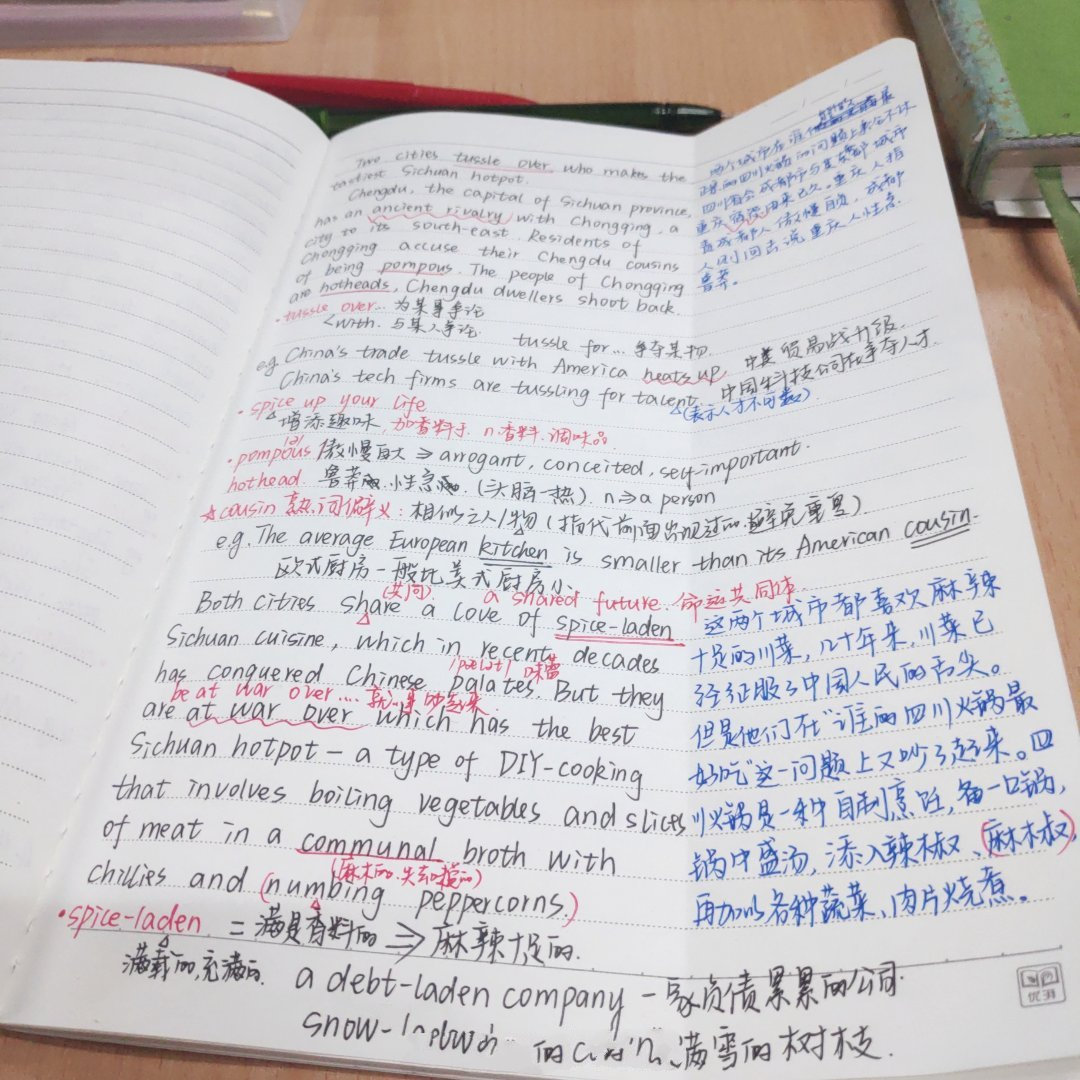 Two cities tussle over who makes the
tastiest Sichuan hotpot.
Chengdu, the capital of Sichuan province,
has an ancient rivalry with Chongqing, a
city to its south-east. Residents of
Chongqing accuse their Chengdu cousins
of being pompous. The people of Chongqing
are hotheads, Chengdu dwellers shoot back.
两个城市在谁
的四川火锅的问题上
四川省会成都市与其东部城市
重庆 由来已久。重庆人指
责成都人傲慢自负,成都
人则回击说重庆人性急
鲁莽。
·tussle over... 为某事争论
<with. 与某人争论
tussle for... 争夺某物.
e.g. China's trade tussle with America heats up. 中美贸易战升级.
China's tech firms are tussling for talent. 中国科技公司在争夺人才.
(表示人才不可数)
·spice up your life
增添趣味, 加香料于. n.香料.调味品
·pompous 傲慢自大 ⇒ arrogant, conceited, self-important.
hothead. 鲁莽 .性急 . (头脑一热). n⇒a person
☆cousin 熟词僻义: 相似之人/物 (指代前面出现过的.避免重复)
e.g. The average European kitchen is smaller than its American cousin.
欧式厨房一般比美式厨房小.
(共同). a shared future. 命运共同体
Both cities share a love of spice-laden
Sichuan cuisine, which in recent decades
味蕾
has conquered Chinese palates. But they
be at war over...
are at war over which has the best
Sichuan hotpot – a type of DIY-cooking
that involves boiling vegetables and slices
of meat in a communal broth with
chillies and (numbing peppercorns.)
这两个城市都喜欢麻辣
十足的川菜,几十年来,川菜已
经征服了中国人民的舌尖。
但是他们在"谁的四川火锅最
好吃"这一问题上又吵了起来。四
川火锅是一种自制烹饪,备一口锅,
锅中盛汤,添入辣椒、(麻椒),
再加以各种蔬菜、肉片烧煮。
·spice-laden = 满是香料的 ⇒ 麻辣十足的.
满载的,充满的.
a debt-laden company 一家负债累累的公司.
满雪的树枝.